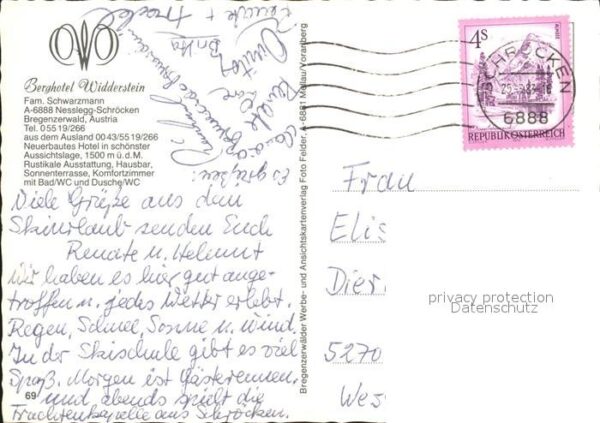 Berghotel Widderstein
Fam. Schwarzmann
A-6888 Nesslegg-Schröcken
Bregenzerwald, Austria
Tel. 05519/266
aus dem Ausland 0043/5519/266
Neuerbautes Hotel in schönster
Aussichtslage, 1500 m ü.d.M.
Rustikale Ausstattung, Hausbar,
Sonnenterrasse, Komfortzimmer
mit Bad/WC und Dusche/WC
Es grüßen:
Britta
Viele Grüße aus dem
Skiurlaub senden Euch
Renate u. Helmut
Wir haben es hier gut ange-
troffen u. jedes Wetter erlebt.
Regen, Schnee, Sonne u. Wind.
In der Skischule gibt es viel
Spaß. Morgen ist Gästerennen,
und abends spielt die
Trachtenkapelle aus Schröcken.
69
Bregenzerwälder Werbe- und Ansichtskartenverlag Foto Felder, A-6881 Mellau/Vorarlberg
4S
SCHRÖCKEN
6888
REPUBLIK ÖSTERREICH
Frau
Elis
Dier
privacy protection
Datenschutz
5270
Wes